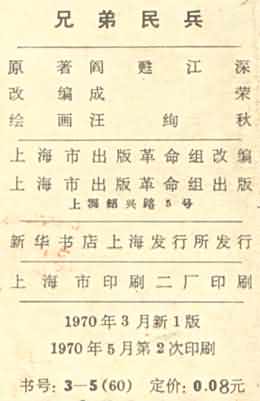 兄弟民兵
原著阎甦江深
改编成荣
绘画汪绚秋
上海市出版革命组改编
上海市出版革命组出版
上海绍兴路5号
新华书店上海发行所发行
上海市印刷二厂印刷
1970年3月新1版
1970年5月第2次印刷
书号: 3—5(60) 定价: 0.08元